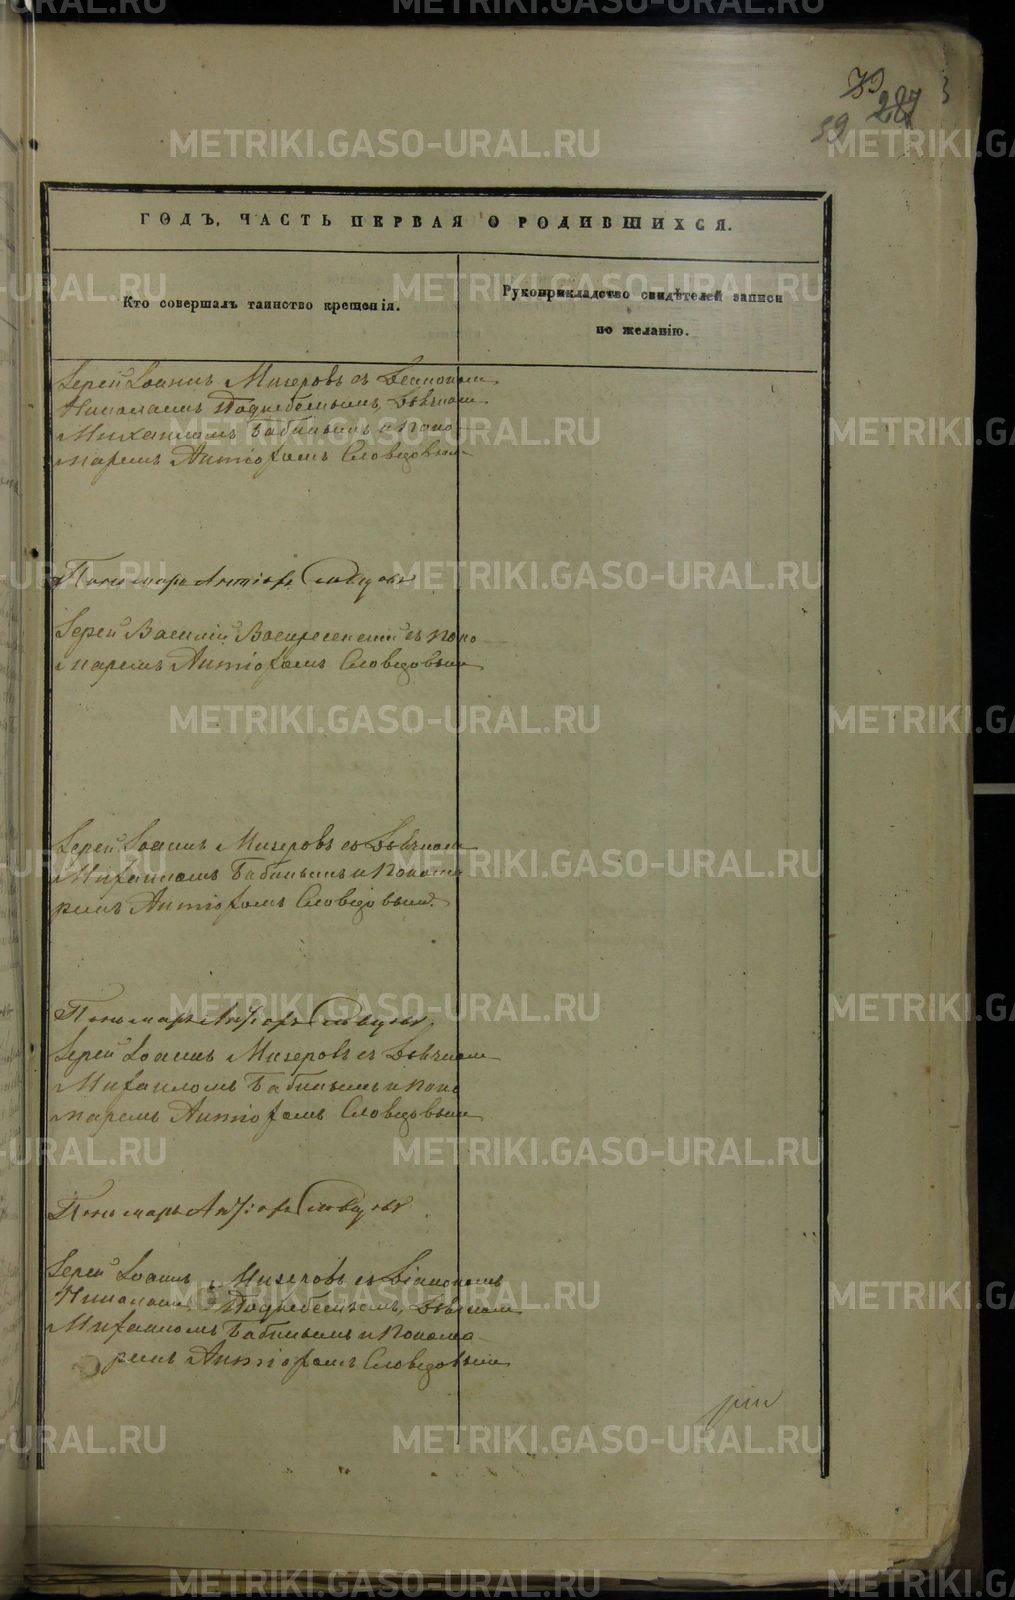 39
287
59
ГОДЪ, ЧАСТЬ ПЕРВАЯ О РОДИВШИХСЯ.
Кто совершалъ таинство крещенія.
Рукоприкладство свидѣтелей записи
по желанію.
Іерей Іоаннъ Мизеровъ съ Діакономъ
Николаемъ Поднебеснымъ, Дьячкомъ
Михаиломъ Бабинымъ и Поно-
маремъ Антіохомъ Словцовымъ
Пономарь Антіохъ Словцовъ
Іерей Василій Воскресенскій съ Поно
маремъ Антіохомъ Словцовымъ
Іерей Іоаннъ Мизеровъ съ Дьячкомъ
Михаиломъ Бабинымъ и Понома
ремъ Антіохомъ Словцовымъ.
Пономарь Антіохъ Словцовъ
Іерей Іоаннъ Мизеровъ съ Дьячкомъ
Михаиломъ Бабинымъ и Поно
маремъ Антіохомъ Словцовымъ
Пономарь Антіохъ Словцовъ
Іерей Іоаннъ Мизеровъ съ Діакономъ
Николаемъ Поднебеснымъ, Дьячкомъ
Михаиломъ Бабинымъ и Понома-
ремъ Антіохомъ Словцовымъ
METRIKI.GASO-URAL.RU